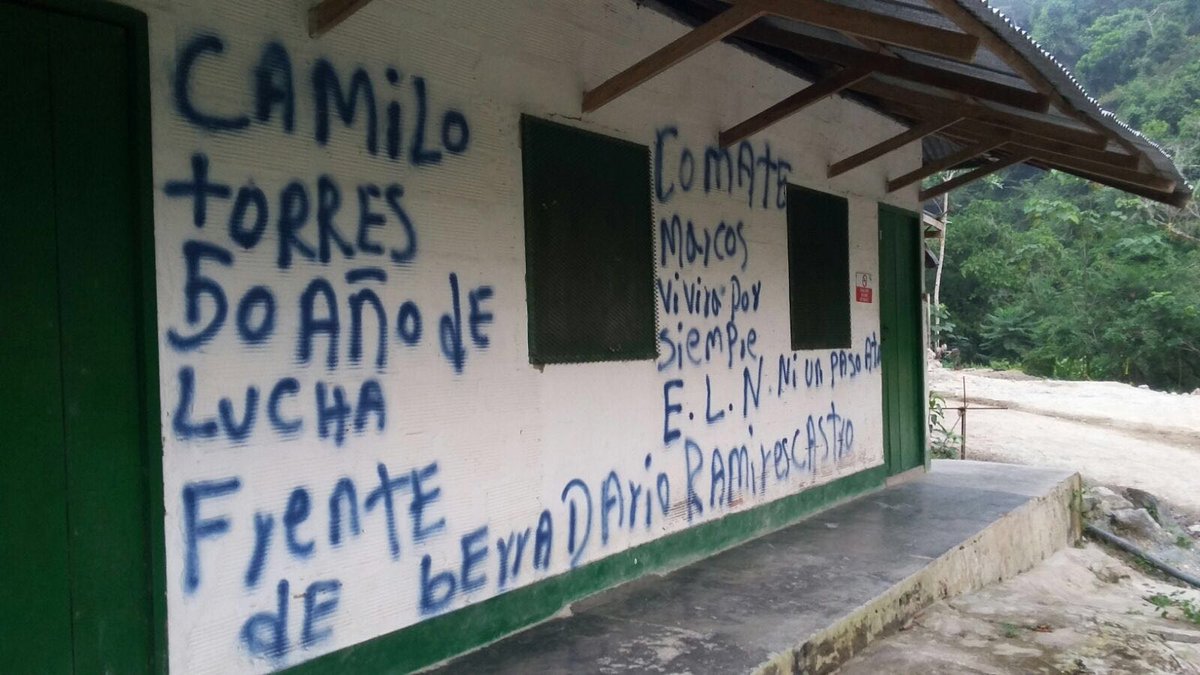 CAMilo
TORRES
50 Año dE
LUCHA
Frente
de bErrA DArio RAmirescAstro
COMAtE
MArcos
ViVira por
siempre
E.L.N. Ni un pAso AtA